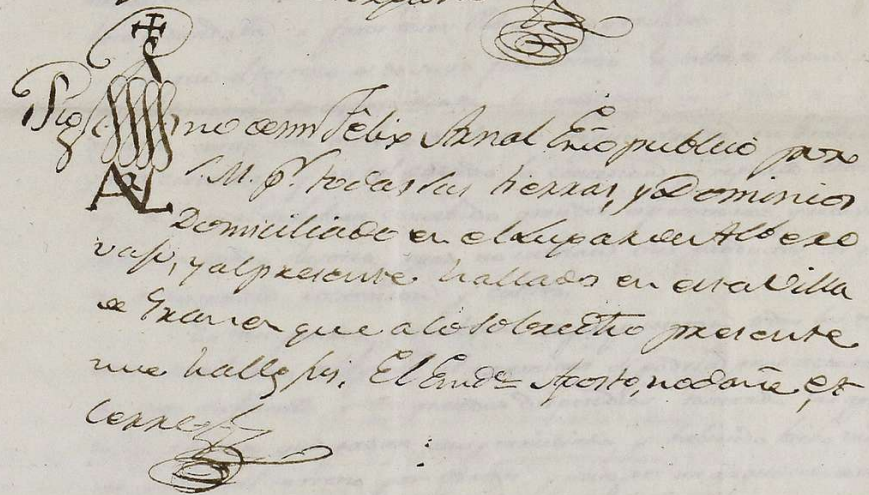 Sig no de mi Felix Arnal Esno publico por
S. M. pr. todas sus tierras, y Dominios
Domiciliado en el Lugar de Albero
vajo, y al presente hallado en esta Villa
de Grañen que a lo sobredho presente
me halle fis. El Emdo Aposto, no dañe, et
Cerre